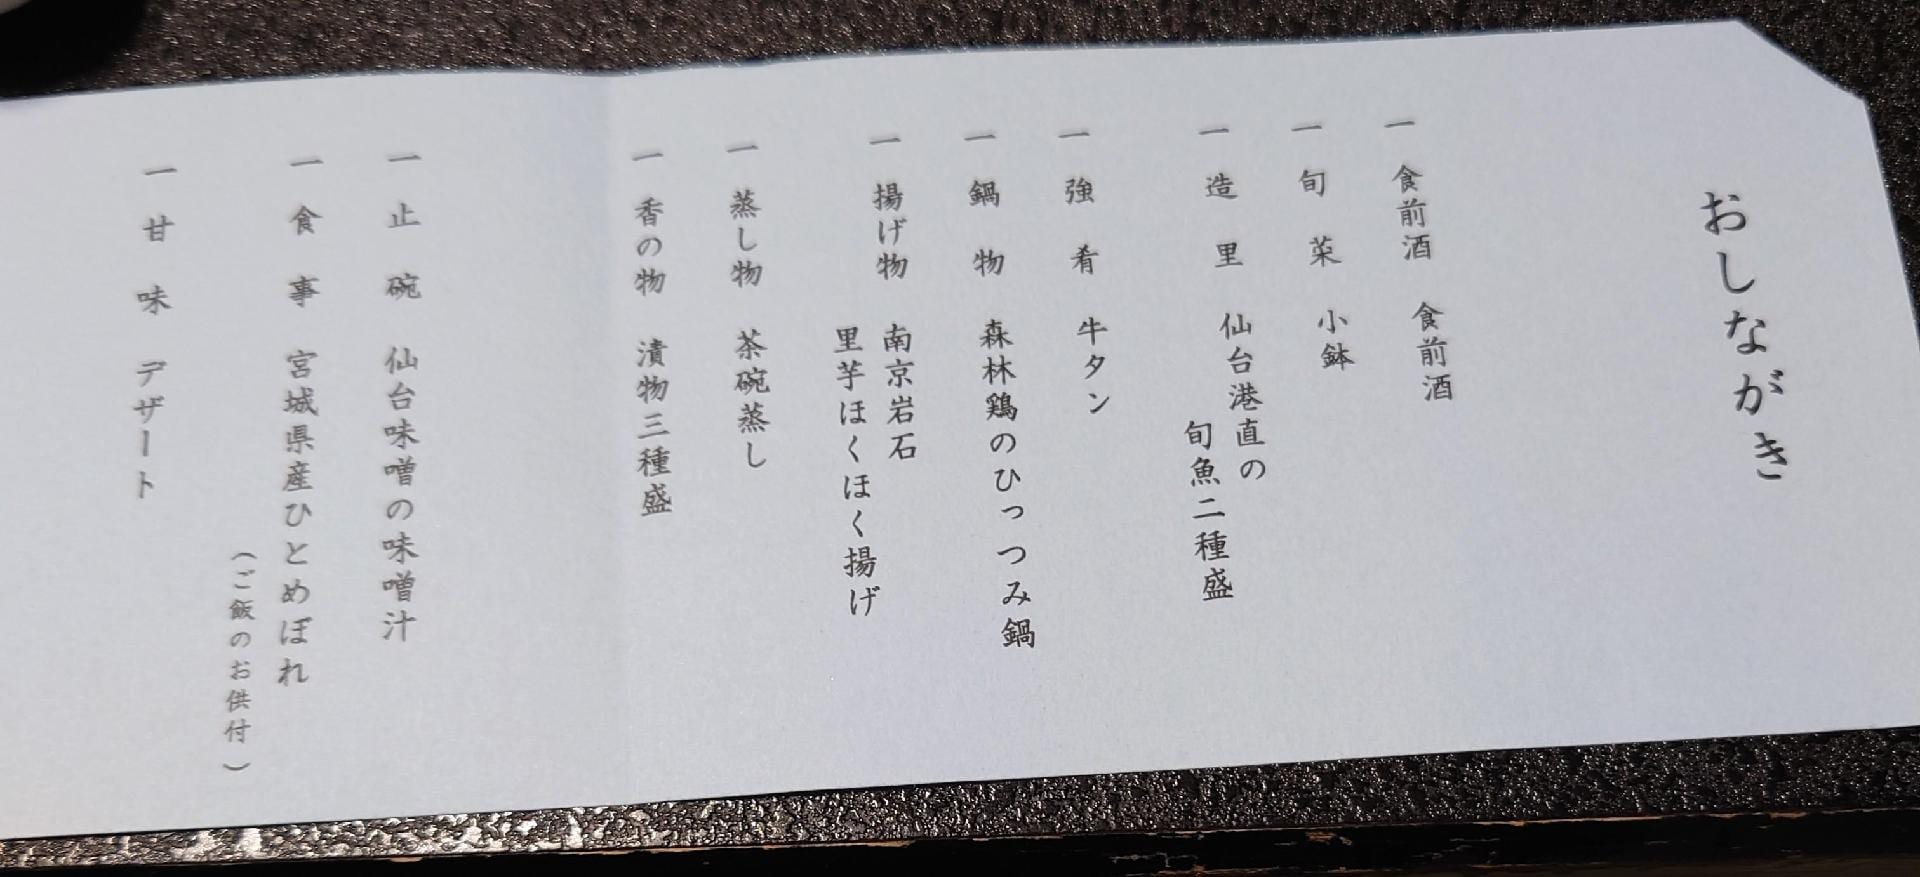 おしながき
一 食前酒 食前酒
一 旬菜 小鉢
一 造里 仙台港直の
旬魚二種盛
一 強肴 牛タン
一 鍋物 森林鶏のひっつみ鍋
一 揚げ物 南京岩石
里芋ほくほく揚げ
一 蒸し物 茶碗蒸し
一 香の物 漬物三種盛
一 止碗 仙台味噌の味噌汁
一 食事 宮城県産ひとめぼれ
（ご飯のお供付）
一 甘味 デザート